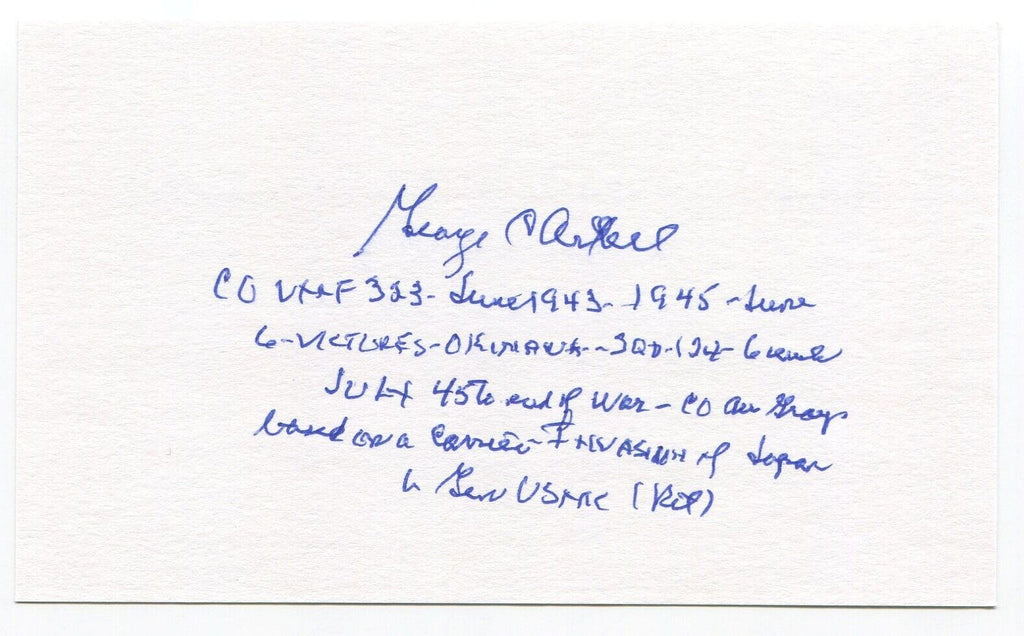 George C Axtell
CO VMF 323 - June 1943 - 1945 - June
6 - VICTORIES - OKINAWA - SQD - 124 - 6 weeks
JULY 45 to end of War - CO Air Group
based on a Carrier - INVASION of Japan
Lt Gen USMC (Ret)